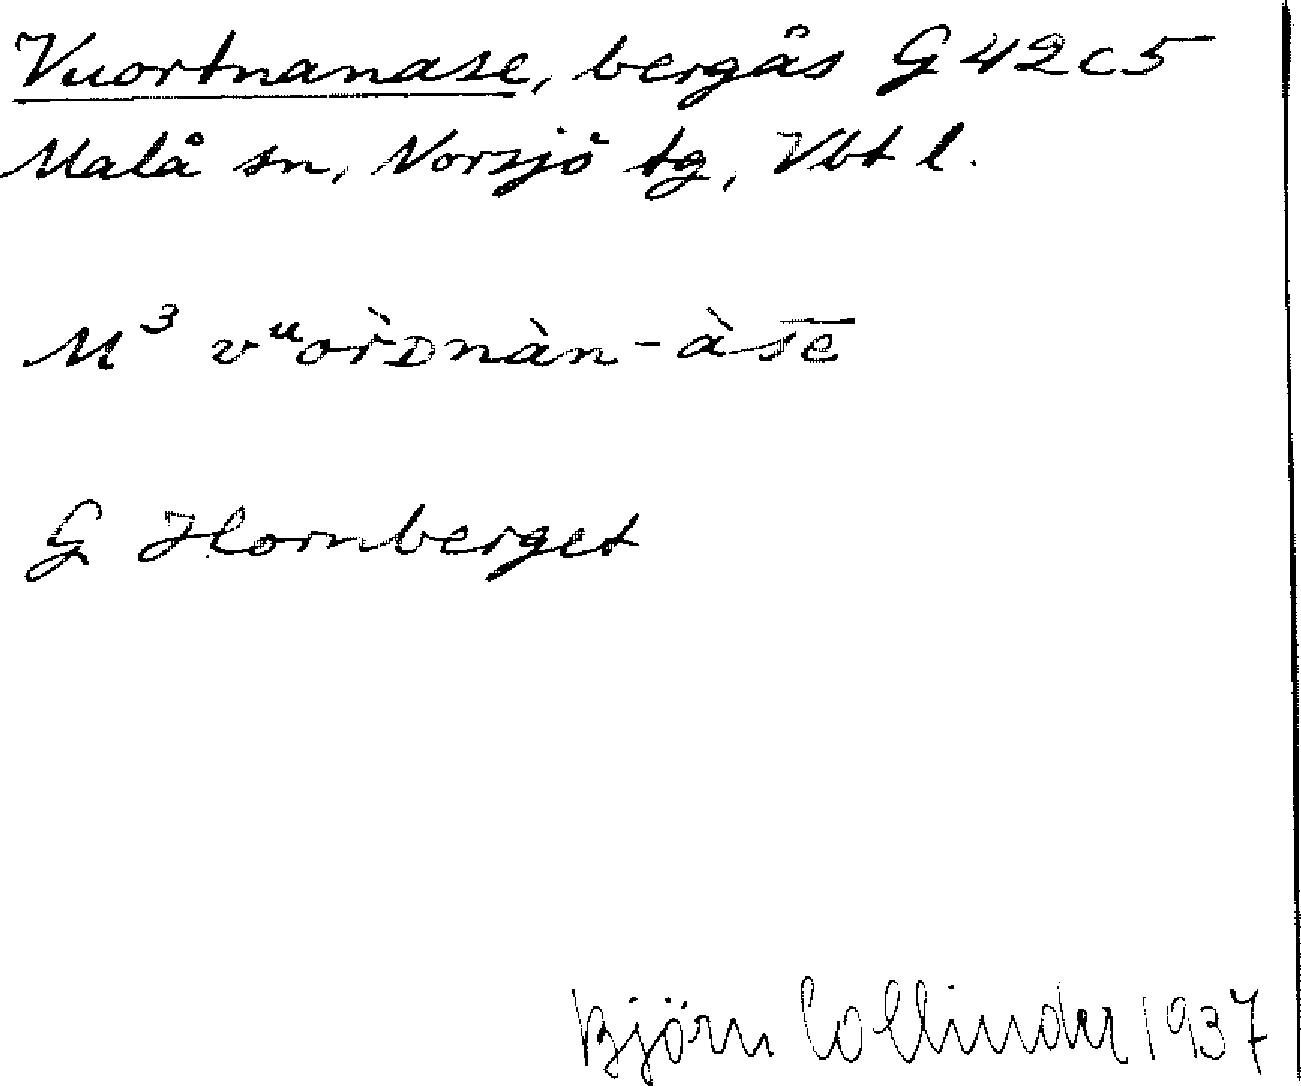 Vuortnanase, bergås G 42 c 5
Malå sn, Norsjö tg, Vbt l.
M³ vᵘor̀ᴅnàn-às̅e̅
G Hornberget
Björn Collinder 1937